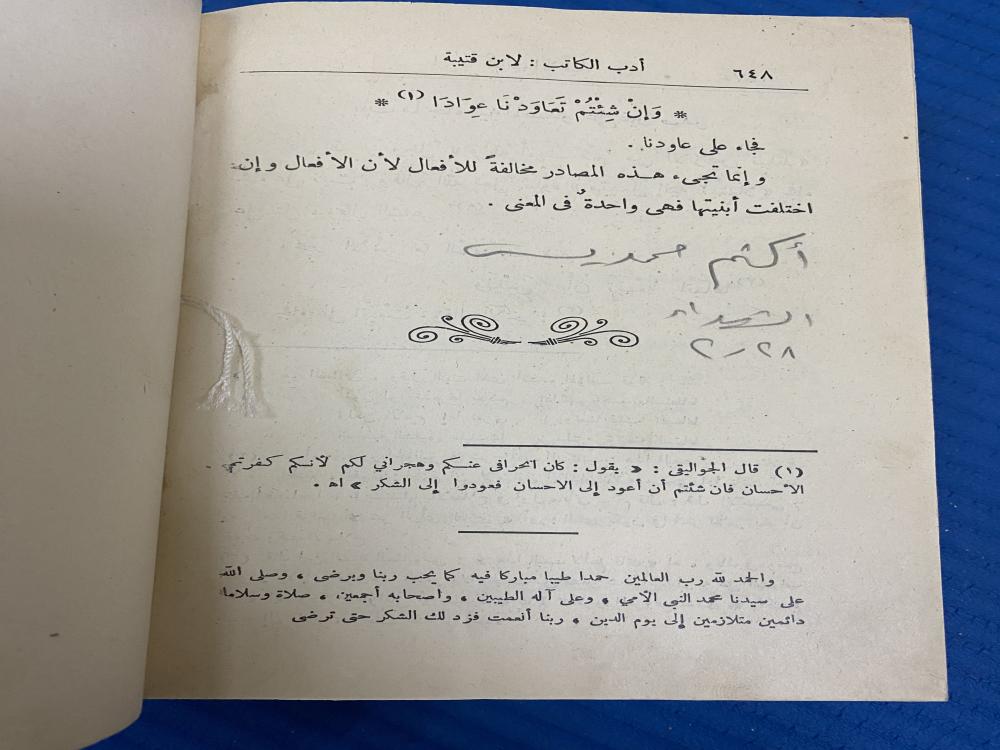 ٦٤٨ أدب الكاتب : لابن قتيبة
* وَإِنْ شِئْتُمْ تَعَاوَدْنَا عِوَادَا (١) *
فجاء على عاودنا .
وإنما تجىء هذه المصادر مخالفةً للأفعال لأن الأفعال وإن
اختلفت أبنيتها فهى واحدةٌ فى المعنى .
أكثم حمد
٢٨ ر ٢
(١) قال الجواليقى : « يقول : كان انحرافى عنكم وهجرانى لكم لأنكم كفرتم
الاحسان فان شئتم أن أعود إلى الاحسان فعودوا إلى الشكر » اهـ .
والحمد لله رب العالمين حمدا طيبا مباركا فيه كما يحب ربنا ويرضى ، وصلى الله
على سيدنا محمد النبى الأمي ، وعلى آله الطيبين ، وأصحابه أجمعين ، صلاة وسلاما
دائمين متلازمين إلى يوم الدين ، ربنا أنعمت فزد لك الشكر حتى ترضى